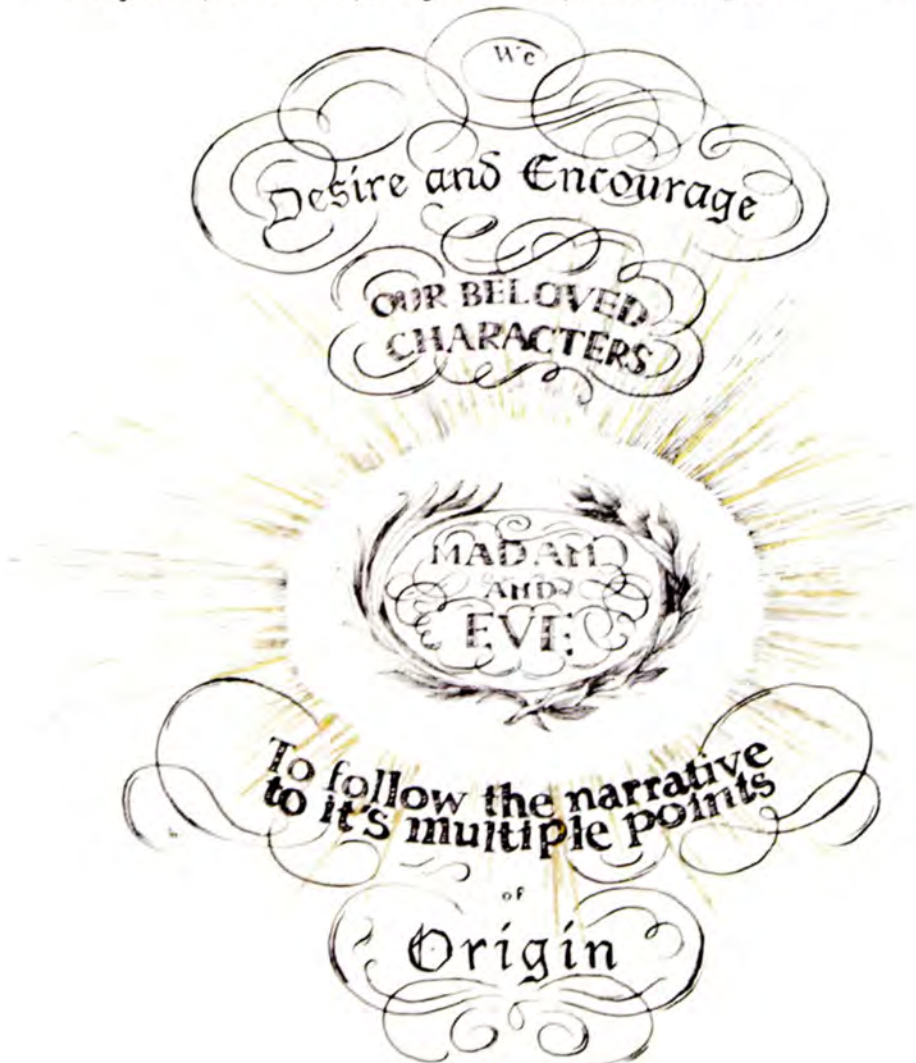 We
Desire and Encourage
OUR BELOVED
CHARACTERS
MADAM
AND
EVE
To follow the narrative
to it's multiple points
of
Origin